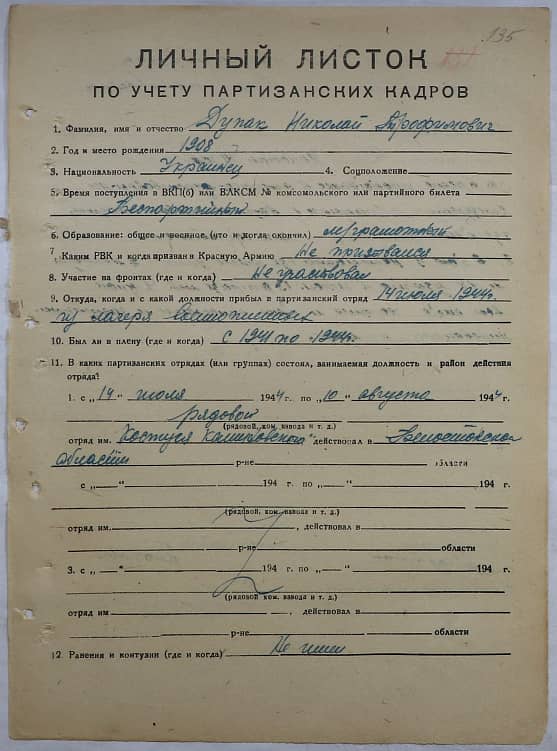 135
ЛИЧНЫЙ ЛИСТОК
ПО УЧЕТУ ПАРТИЗАНСКИХ КАДРОВ
1. Фамилия, имя и отчество Дупак Николай Трофимович
2. Год и место рождения 1908
3. Национальность Украинец 4. Соцположение
5. Время поступления в ВКП(б) или ВЛКСМ № комсомольского или партийного билета
Беспартийный
6. Образование: общее и военное (что и когда окончил) м/грамотный
7 Каким РВК и когда призван в Красную Армию Не призвался
8. Участие на фронтах (где и когда) Не участвовал
9. Откуда, когда и с какой должности прибыл в партизанский отряд 14 июля 1944г.
из лагеря
10. Был ли в плену (где и когда) с 1941 по 1944г.
11. В каких партизанских отрядах (или группах) состоял, занимаемая должность и район действия
отряда?
1. с „14" июля 1944 г. по „10" августа 1944 г.
рядовой
(рядовой, ком. взвода и т. д.)
отряд им. Костуся Калиновского" действовал в Белостокской
области р-не области
с „—" 194 г. по „—" 194 г.
(рядовой, ком. взвода и т. д.)
отряд им. , действовал в
р-не области
3. с „—" 194 г. по „—" 194 г.
(рядовой, ком. взвода и т. д.)
отряд им. , действовал в
р-не области
12. Ранения и контузии (где и когда) Не имел